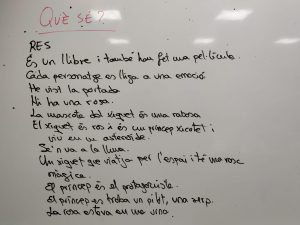 QUÈ SÉ?
RES
És un llibre i també han fet una pel·lícula.
Cada personatge es lliga a una emoció
He vist la portada
Hi ha una rosa.
La mascota del xiquet és una rabosa
El xiquet és ros i és un príncep xicotet i
viu en un asteroide.
Se'n va a la lluna.
Un xiquet que viatja per l'espai i té una rosa
màgica.
El príncep és el protagonista.
El príncep es troba un pilot, una serp.
La rosa estava en una urna.